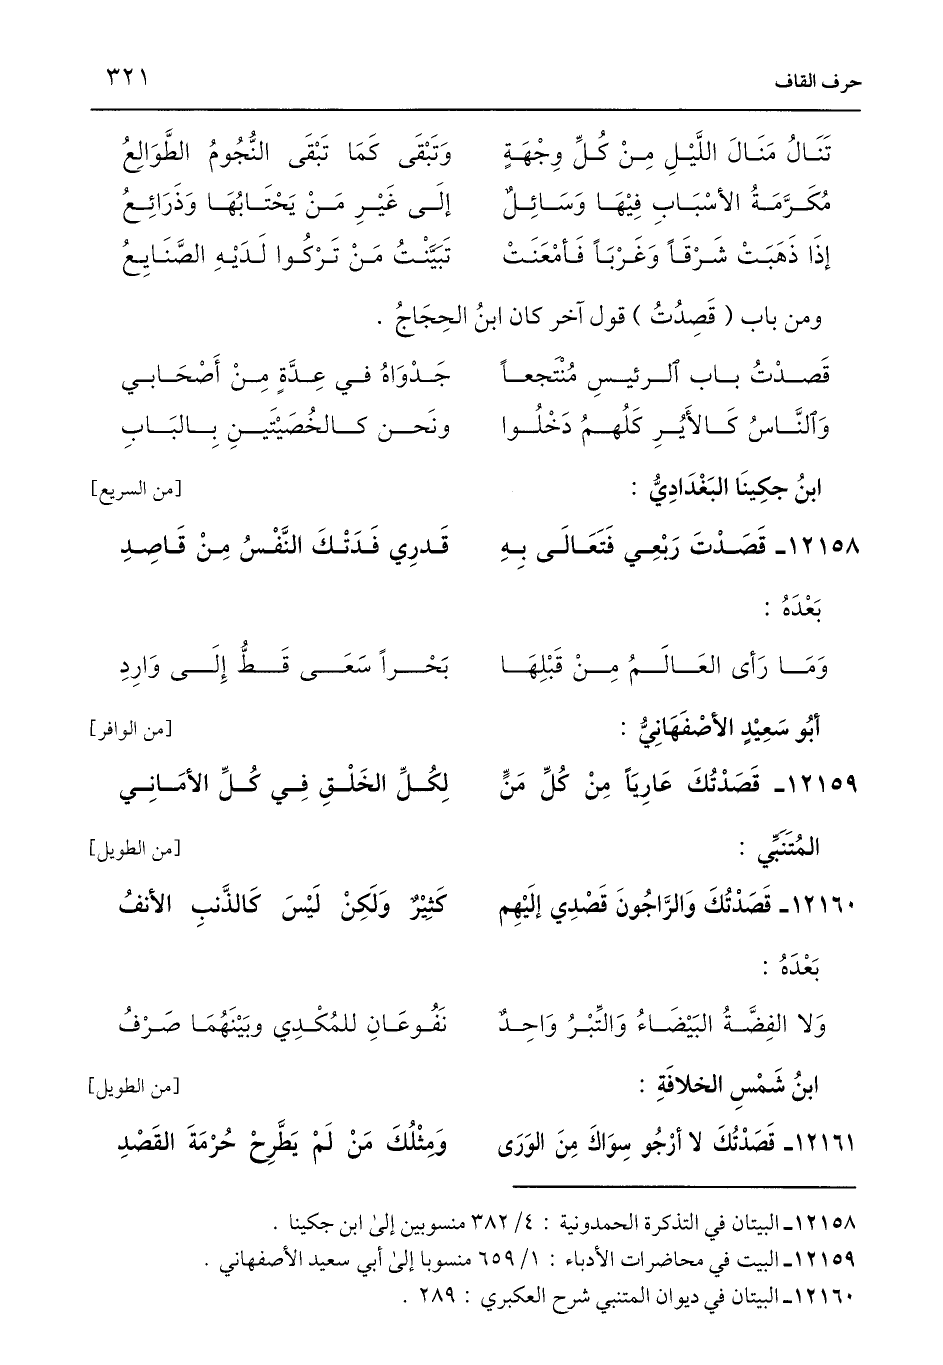 حرف القاف ٣٢١
تَنَالُ مَنَالَ اللَّيْلِ مِنْ كُلِّ وِجْهَةٍ وَتَبْقَى كَمَا تَبْقَى النُّجُومُ الطَّوَالِعُ
مُكَرَّمَةُ الأسْبَابِ فِيْهَا وَسَائِلٌ إلَى غَيْرِ مَنْ يَحْتَابُهَا وَذَرَائِعُ
إذَا ذَهَبَتْ شَرْقَاً وَغَرْبَاً فَأمْعَنَتْ تَبَيَّنْتُ مَنْ تَرْكُوا لَدَيْهِ الصَّنَايِعُ
ومن باب ( قَصِدْتُ ) قول آخر كان ابنُ الحِجَاجُ .
قَصدْتُ بابَ ٱلرئيسِ مُنْتَجعاً جَدْوَاهُ في عِدَّةٍ مِنْ أَصْحَابي
وَٱلنَّاسُ كَالأيْرِ كَلُهمُ دَخْلُوا ونَحن كالخُصَيْتَينِ بِالبَابِ
ابنُ جكِينَا البَغْدَادِيُّ : [من السريع]
١٢١٥٨ـ قَصَدْتَ رَبْعِي فَتَعَالَى بِهِ قَدرِي فَدَتْكَ النَّفْسُ مِنْ قَاصِدِ
بَعْدَهُ :
وَمَا رَأى العَالَمُ مِنْ قَبْلِهَا بَحْراً سَعَى قَطُّ إلَى وَارِدِ
أبُو سَعِيْدٍ الأصْفَهَانِيُّ : [من الوافر]
١٢١٥٩ـ قَصَدْتُكَ عَارِيَاً مِنْ كُلِّ مَنٍّ لِكُلِّ الخَلْقِ فِي كُلِّ الأمَانِي
المُتَنَبِّي : [من الطويل]
١٢١٦٠ـ قَصَدْتُكَ وَالرَّاجُونَ قَصْدِي إلَيْهِم كَثِيْرٌ وَلَكِنْ لَيْسَ كَالذَّنبِ الأنفُ
بَعْدَهُ :
وَلا الفِضَّةُ البَيْضَاءُ وَالتِّبْرُ وَاحِدٌ نَفُوعَانِ للمُكْدِي وبَيْنَهُمَا صَرْفُ
ابنُ شَمْسِ الخلافَةِ : [من الطويل]
١٢١٦١ـ قَصَدْتُكَ لا أرْجُو سِوَاكَ مِنَ الوَرَى وَمِثْلُكَ مَنْ لَمْ يَطَّرِحْ حُرْمَةَ القَصْدِ
١٢١٥٨ـ البيتان في التذكرة الحمدونية : ٤/ ٣٨٢ منسوبين إلىٰ ابن جكينا .
١٢١٥٩ـ البيت في محاضرات الأدباء : ١/ ٦٥٩ منسوبا إلىٰ أبي سعيد الأصفهاني .
١٢١٦٠ـ البيتان في ديوان المتنبي شرح العكبري : ٢٨٩ .